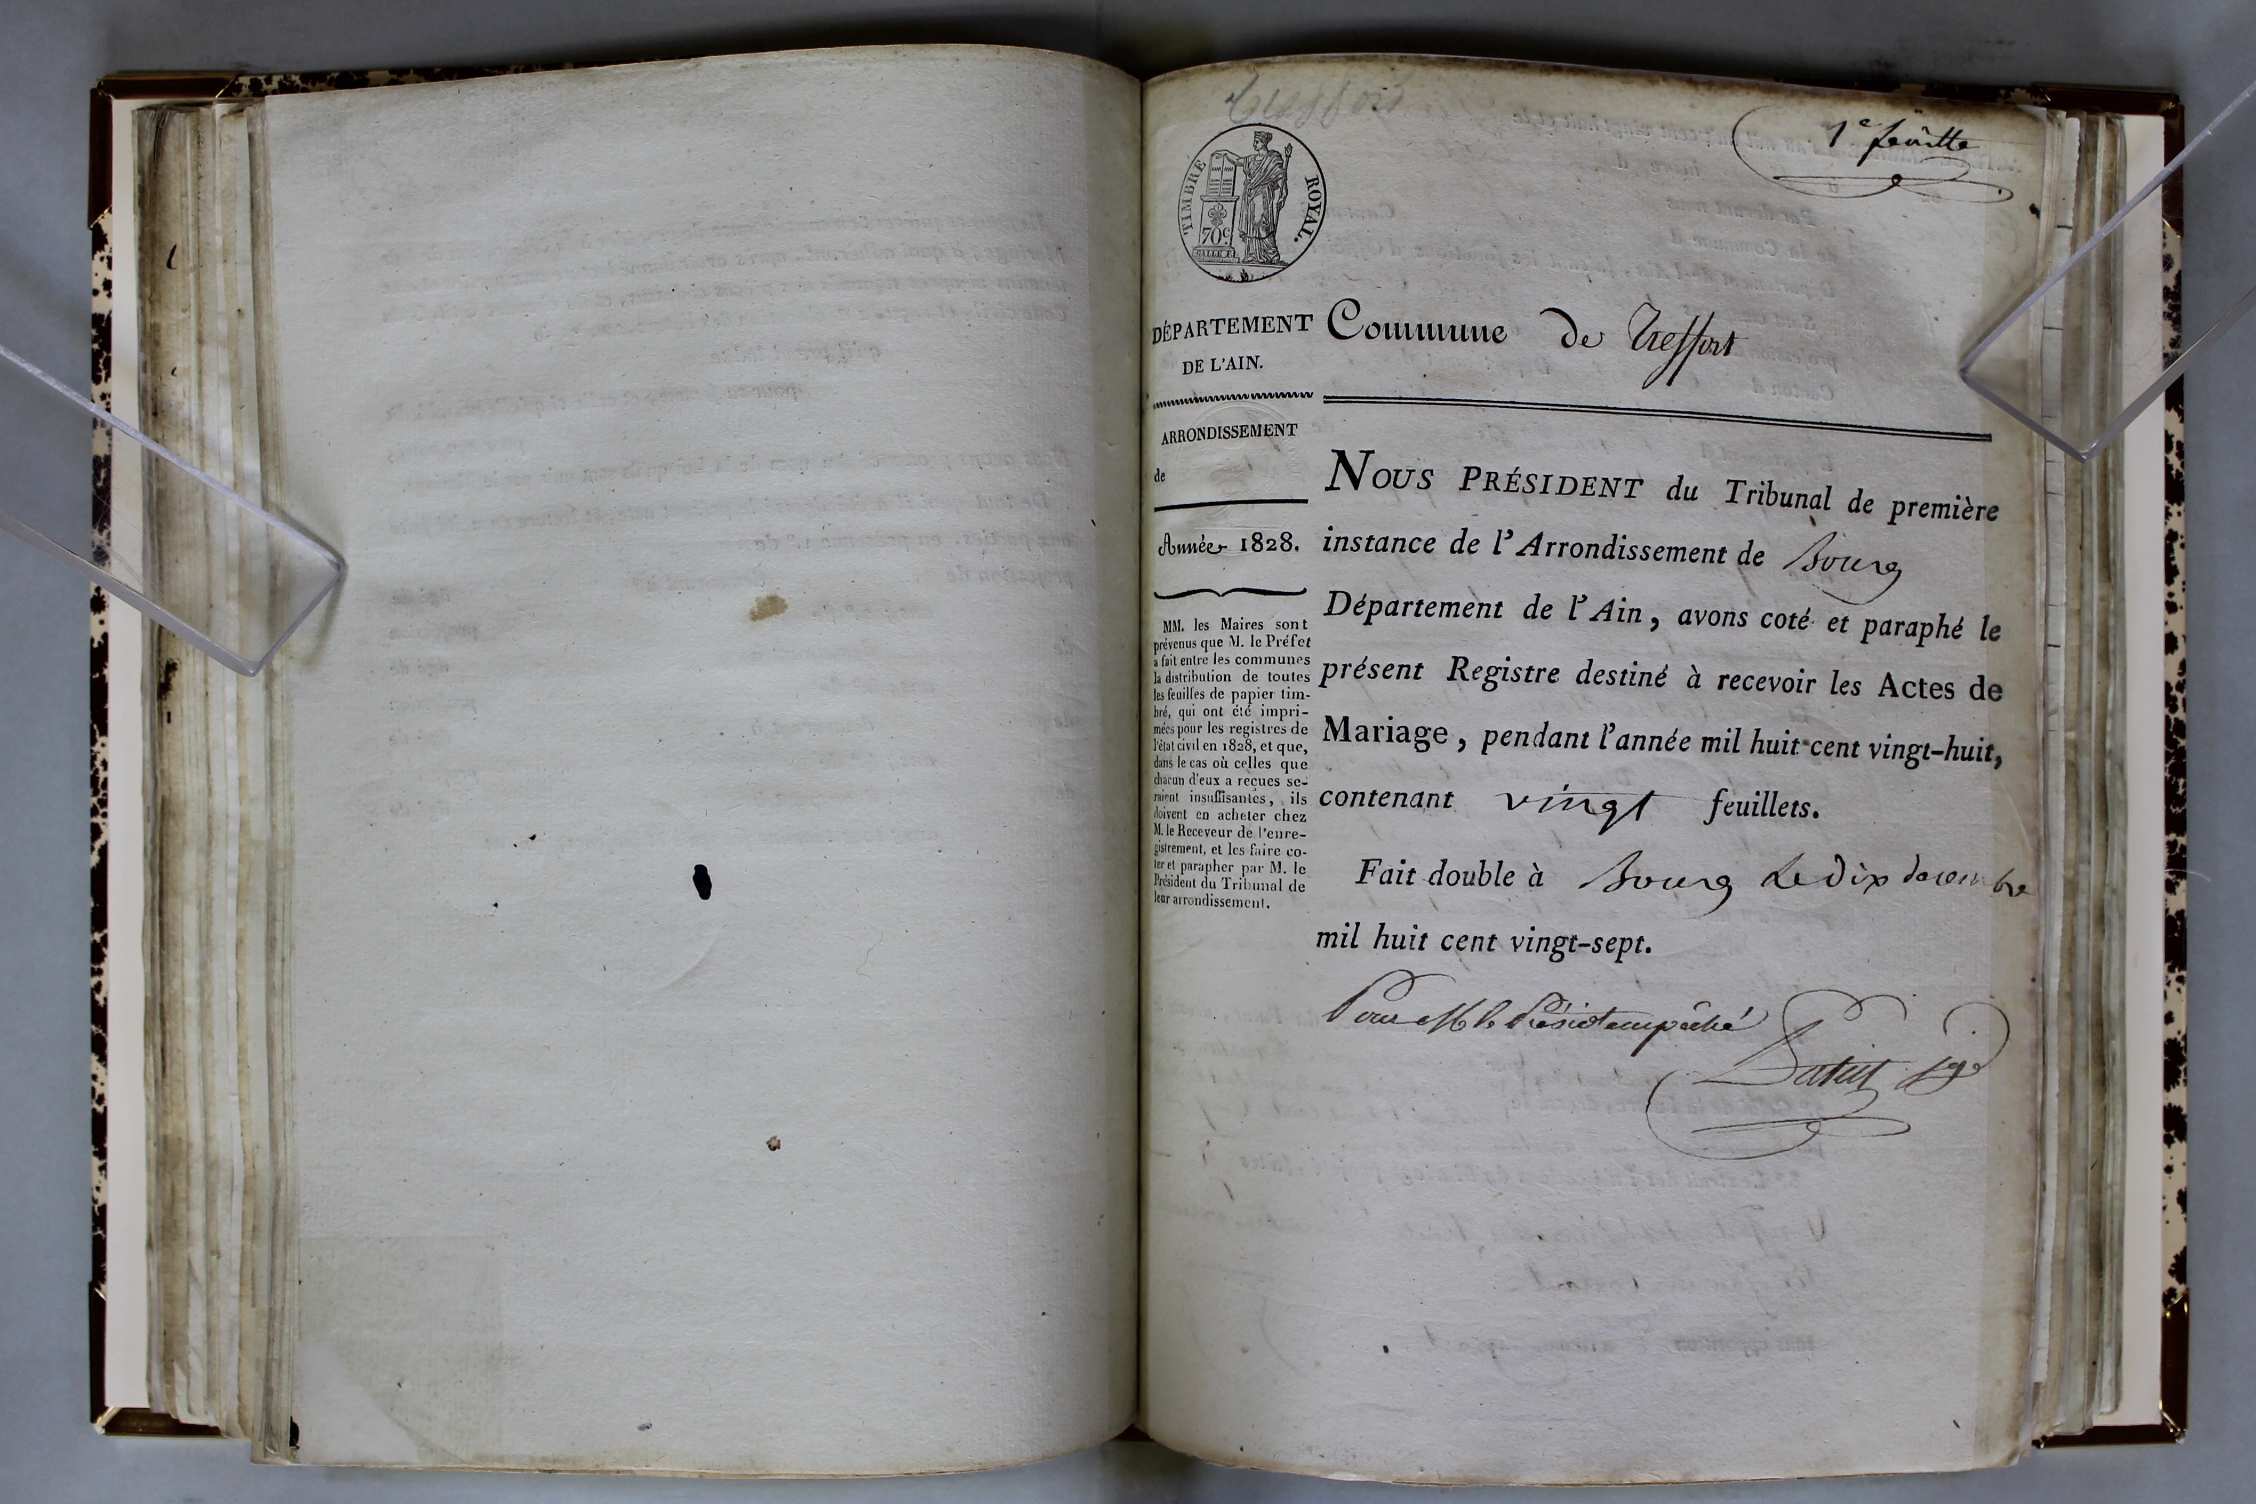 Treffort
1e feuille
TIMBRE ROYAL.
70c
DÉPARTEMENT
DE L'AIN.
Commune de Treffort
ARRONDISSEMENT
de
Année 1828.
MM. les Maires sont
prévenus que M. le Préfet
a fait entre les communes
la distribution de toutes
les feuilles de papier tim-
bré, qui ont été impri-
mées pour les registres de
l'état civil en 1828, et que,
dans le cas où celles que
chacun d'eux a reçues se-
raient insuffisantes, ils
doivent en acheter chez
M. le Receveur de l'enre-
gistrement, et les faire co-
ter et parapher par M. le
Président du Tribunal de
leur arrondissement.
NOUS PRÉSIDENT du Tribunal de première
instance de l'Arrondissement de Bourg
Département de l'Ain, avons coté et paraphé le
présent Registre destiné à recevoir les Actes de
Mariage, pendant l'année mil huit cent vingt-huit,
contenant vingt feuillets.
Fait double à Bourg Le dix decembre
mil huit cent vingt-sept.
Pour M le Présidt empêché
juge